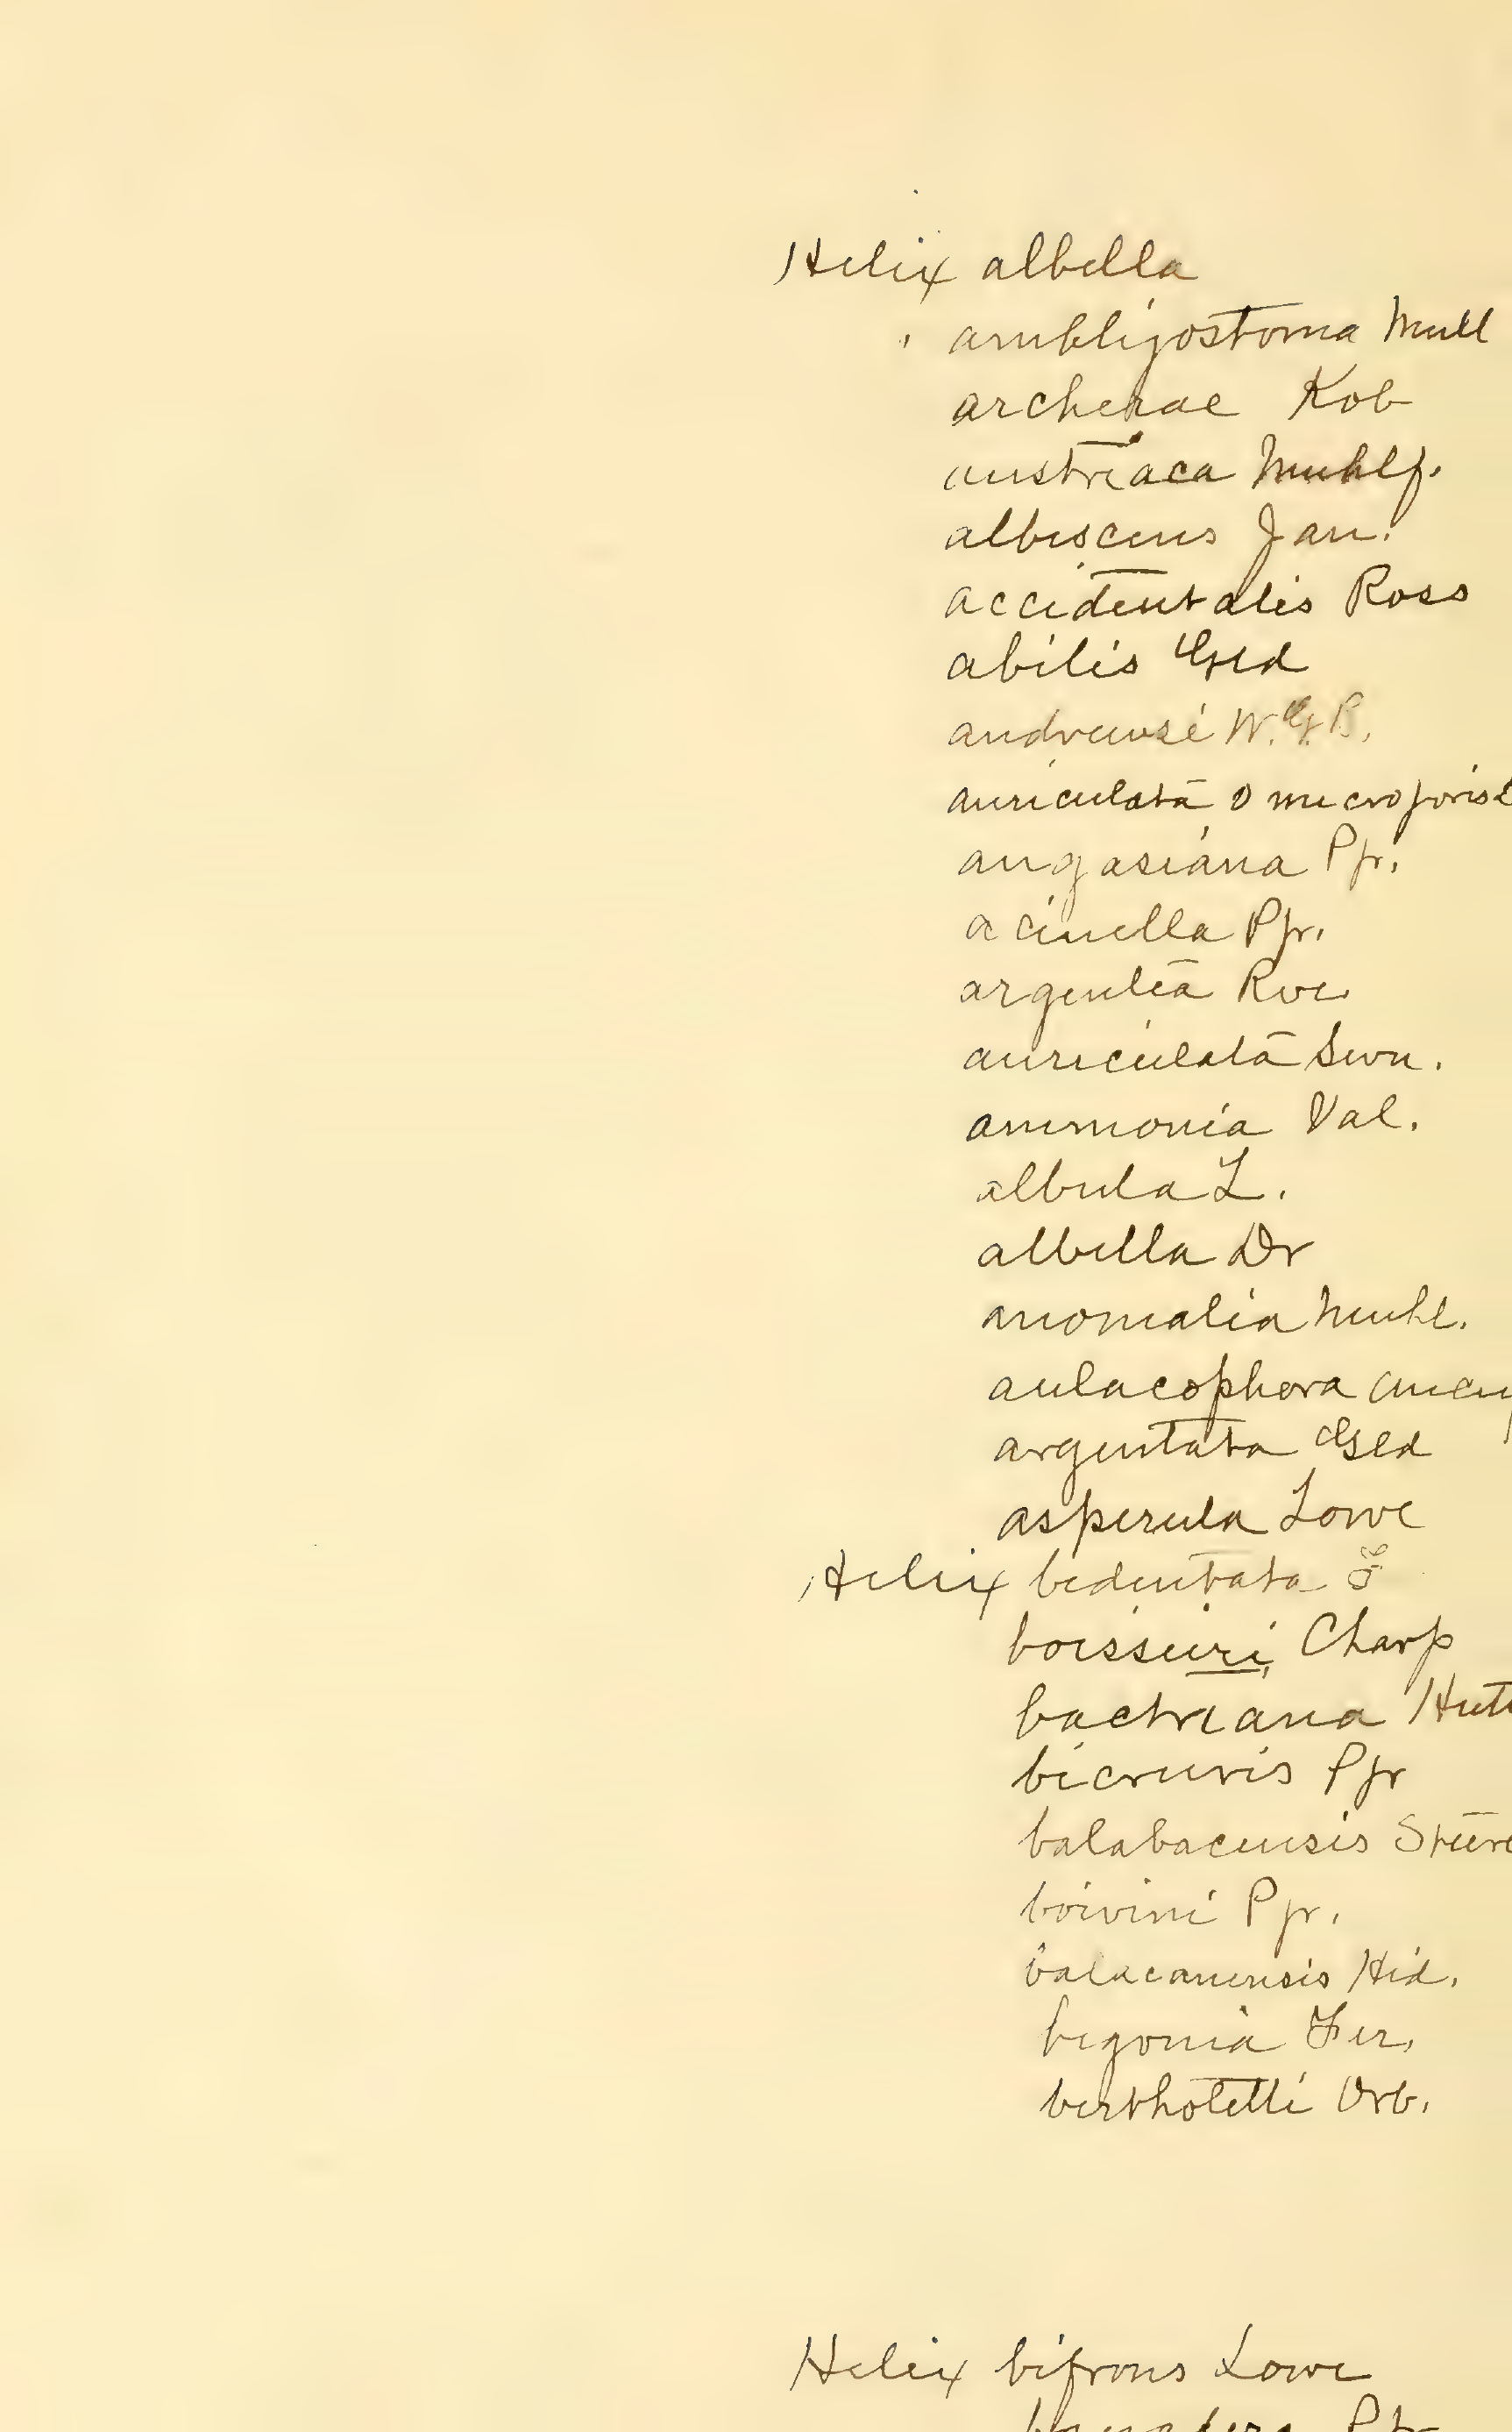 Helix albella
ambligostoma Mull
archerae Kob
austriaca Muhlf.
albescens Jan.
accidentalis Ross
abilis Gld
andrewsi W.G.B.
auriculata
angasiana Pfr.
acinella Pfr.
argentea Rve.
auriculata Swn.
ammonia Val.
albula L.
albella Dr
anomalia Muhl.
aulacophora
argentata Gld
asperula Lowe
Helix bedentata
boissieri Charp
bactriana Hutt
bicruris Pfr
balabacensis Steere
boivini Pfr.
balacanensis Hid.
begonia Fer.
berthotelli Orb.
Helix bifrons Lowe